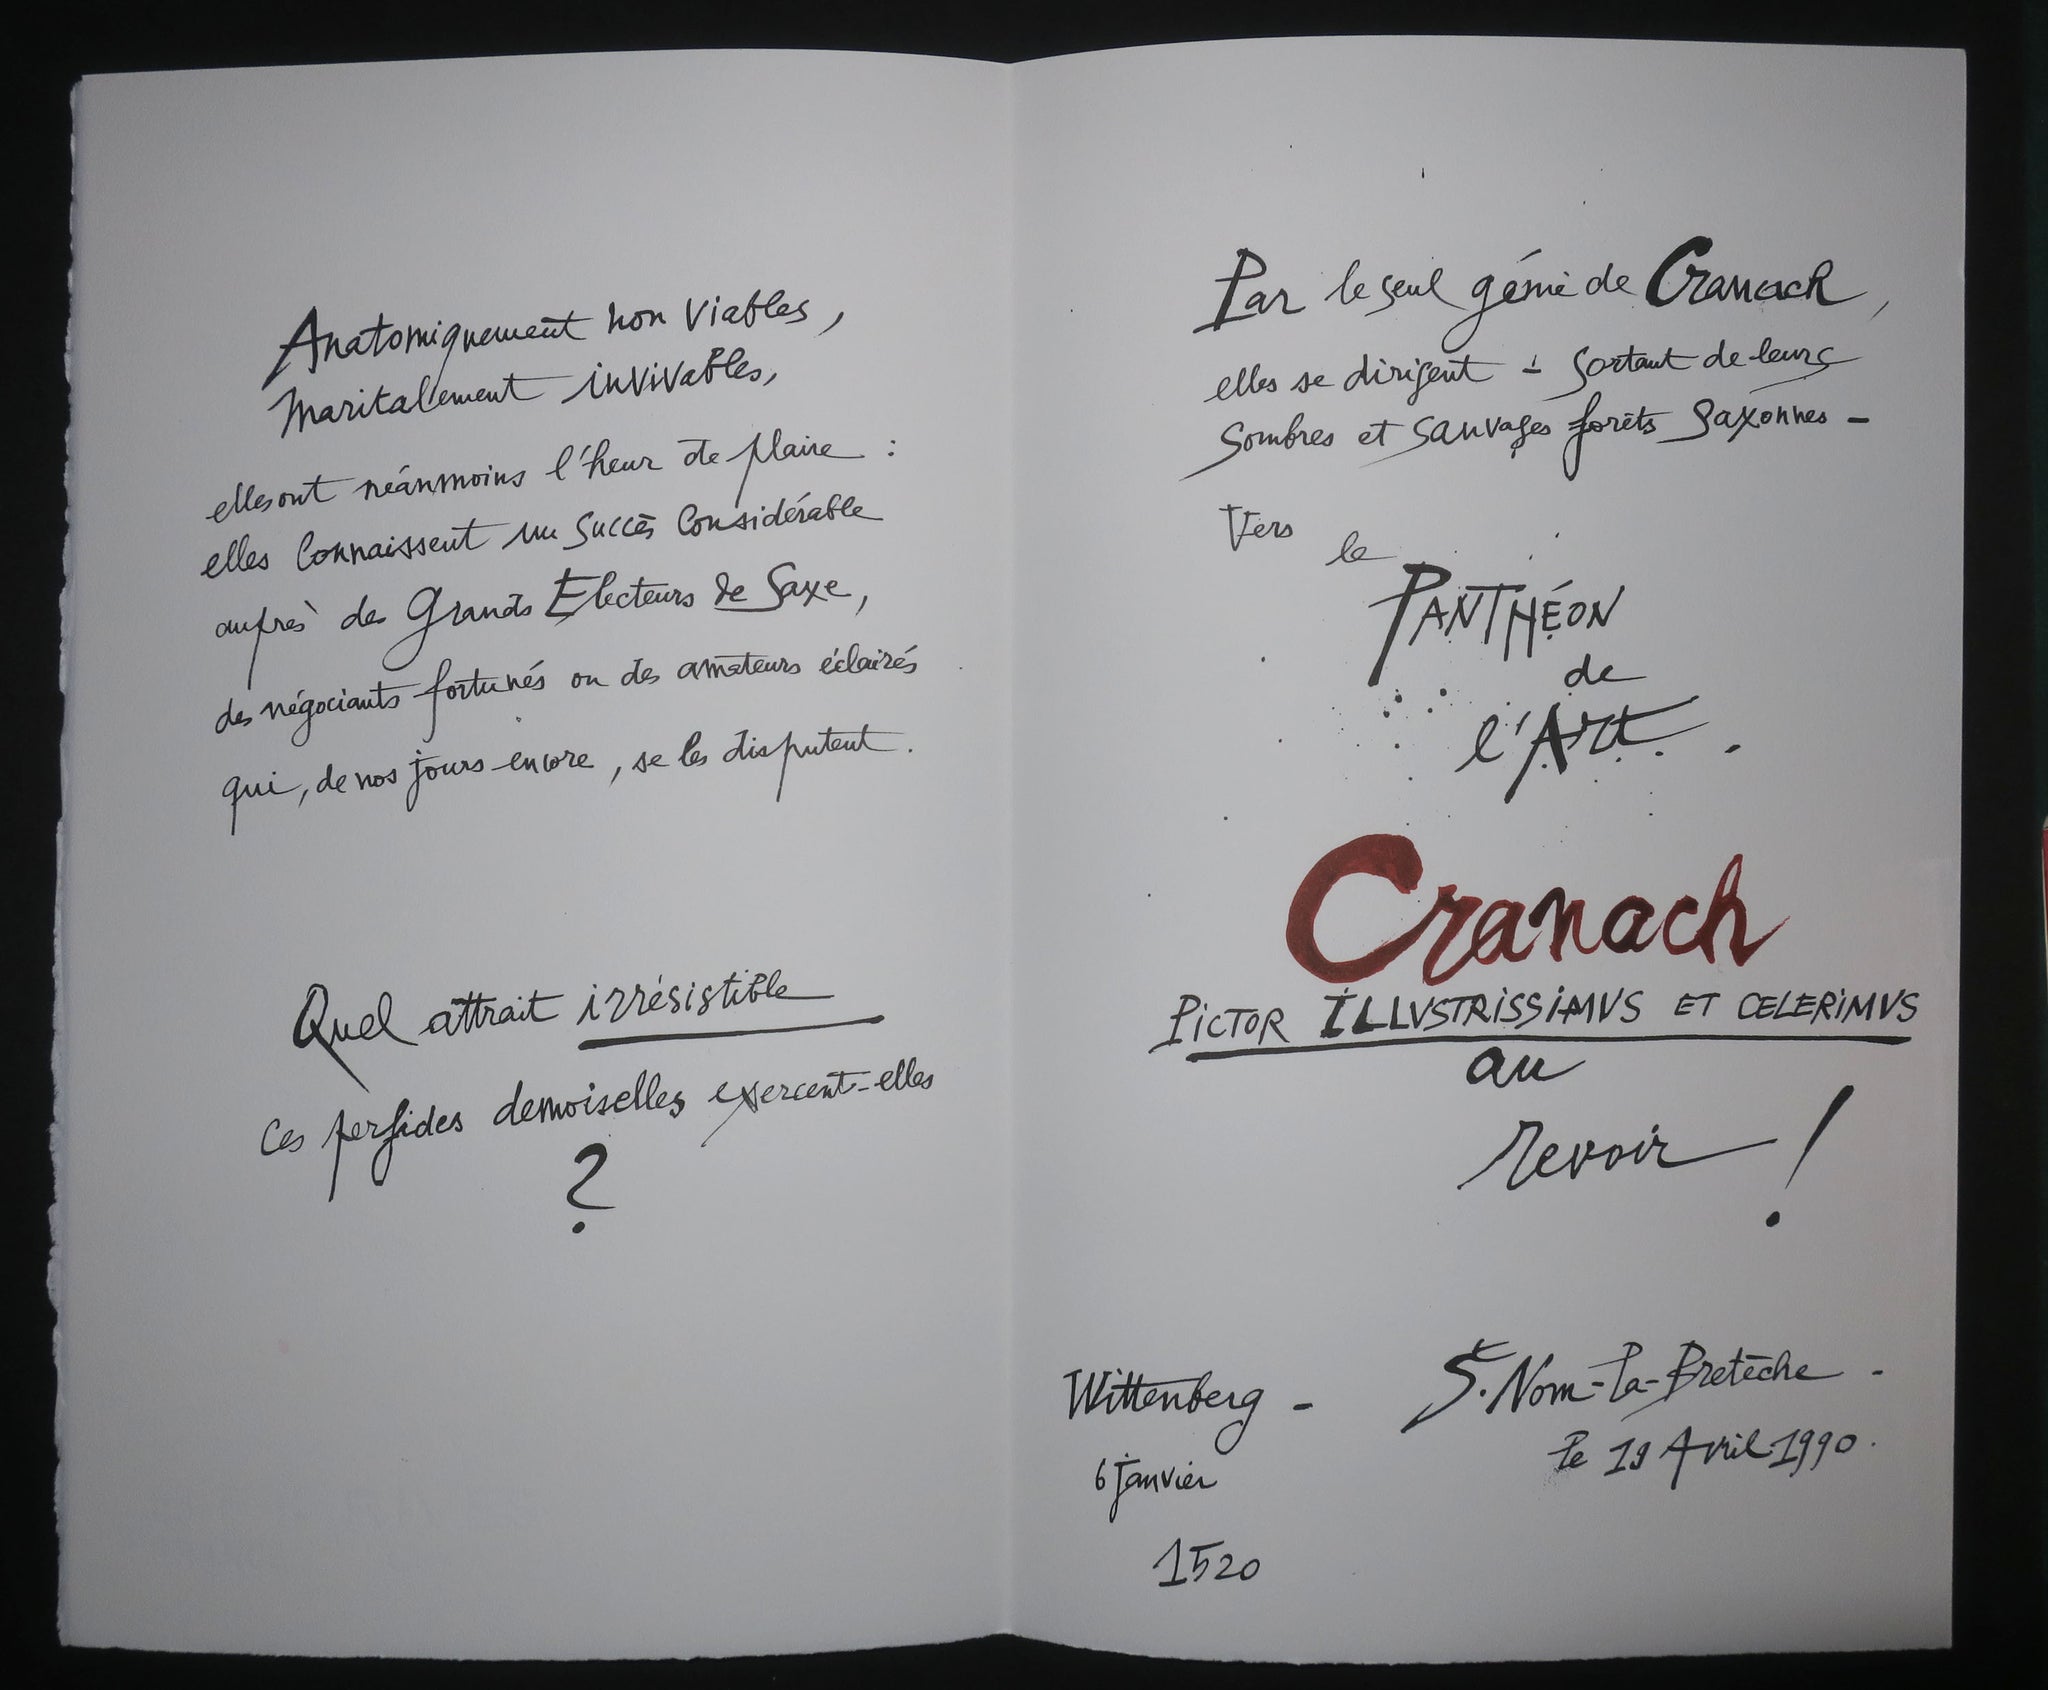 Anatomiquement non viables,
Maritalement invivables,
elles ont néanmoins l'heur de plaire :
elles connaissent un succès considérable
auprès des Grands Electeurs de Saxe,
des négociants fortunés ou des amateurs éclairés
qui, de nos jours encore, se les disputent.
Quel attrait irrésistible
ces perfides demoiselles exercent-elles
?
Par le seul génie de Cranach,
elles se dirigent - sortant de leurs
sombres et sauvages forêts saxonnes -
Vers le
PANTHÉON
de
l'Art.
Cranach
PICTOR ILLVSTRISSIMVS ET CELERIMVS
au
revoir !
Wittenberg -
6 janvier
1520
St. Nom-la-Bretèche -
le 19 Avril 1990.